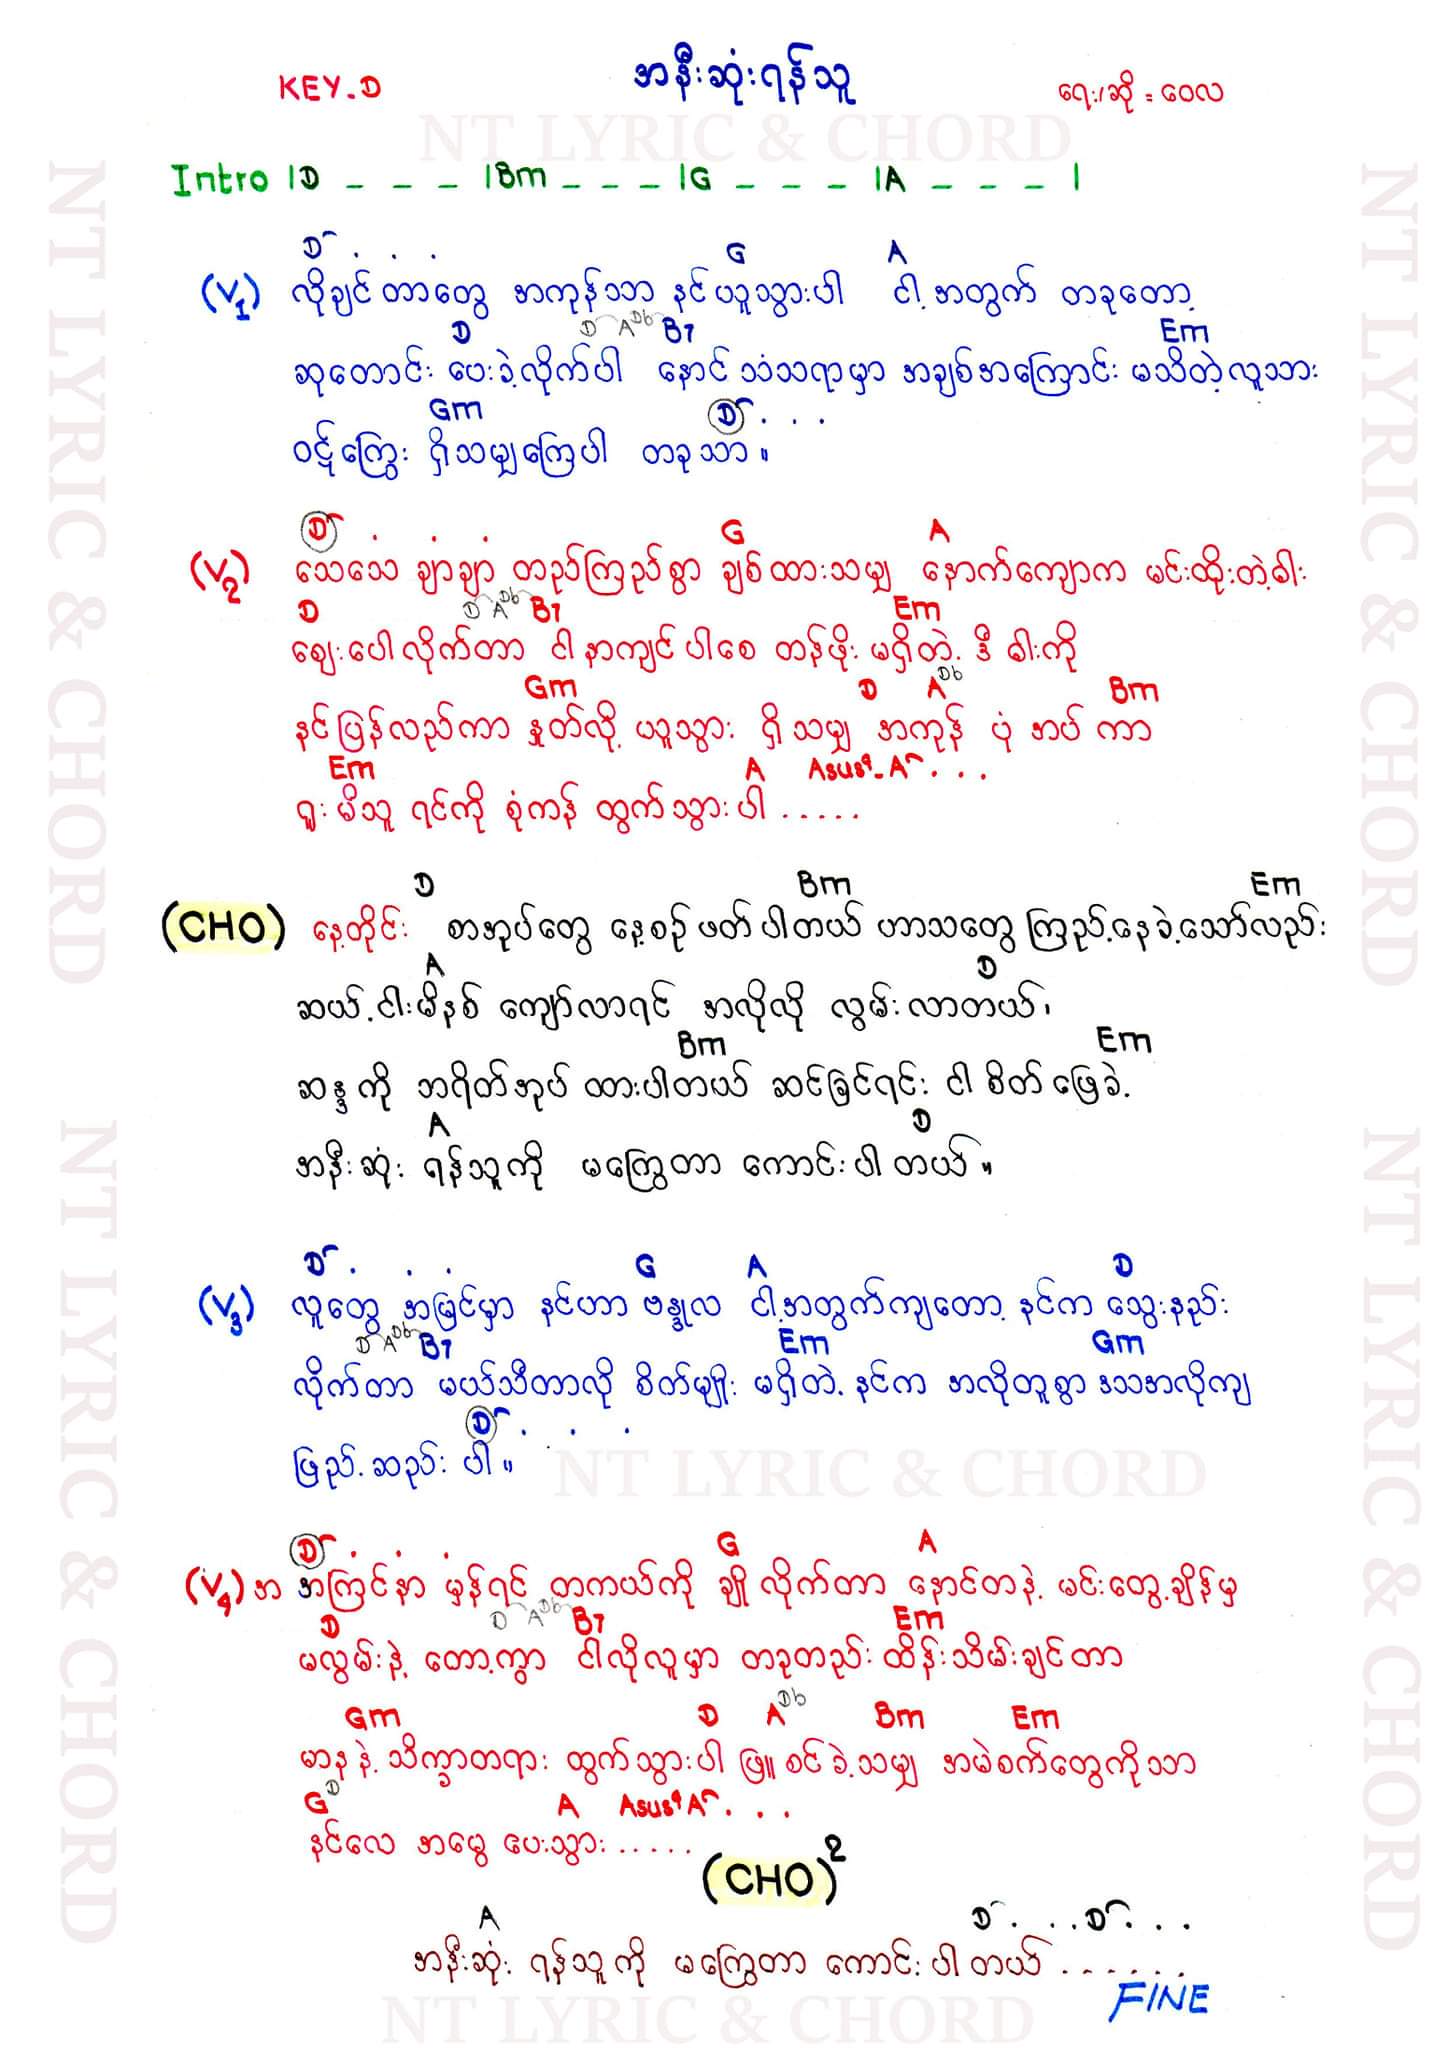 KEY.D
အနီးဆုံးရန်သူ
ရေး/ဆို = ဝေလ
NT LYRIC & CHORD
Intro |D _ _ _ |Bm _ _ _ |G _ _ _ |A _ _ _ |
D . . . G A
(V1) လိုချင်တာတွေ အကုန်သာ နင်ယူသွားပါ ငါ့အတွက် တခုတော့
D D ADb B7 Em
ဆုတောင်း ပေးခဲ့လိုက်ပါ နောင်သံသရာမှာ အချစ်အကြောင်း မသိတဲ့လူသား
Gm D . . .
ဝဋ်ကြွေး ရှိသမျှကြေပါ တခုသာ။
D . . . G A
(V2) သေသေ ချာချာ တည်ကြည်စွာ ချစ်ထားသမျှ နောက်ကျောက မင်းထိုးတဲ့ဓါး
D D ADb B7 Em
ဈေးပေါလိုက်တာ ငါနာကျင်ပါစေ တန်ဖိုး မရှိတဲ့ ဒီ ဓါးကို
Gm D ADb Bm
နင်ပြန်လည်ကာ နှုတ်လို့ ယူသွား ရှိသမျှ အကုန် ပုံ အပ် ကာ
Em A Asus4-A . . .
ရူးမိသူ ရင်ကို စုံကန် ထွက်သွားပါ .....
D Bm Em
(CHO) နေ့တိုင်း စာအုပ်တွေ နေ့စဉ်ဖတ်ပါတယ် ဟာသတွေ ကြည့်နေခဲ့သော်လည်း
A D
ဆယ့်ငါးမိနစ် ကျော်လာရင် အလိုလို လွမ်းလာတယ်၊
Bm Em
ဆန္ဒကို ဘရိတ်အုပ် ထားပါတယ် ဆင်ခြင်ရင်း ငါ စိတ်ဖြေခဲ့
A D
အနီးဆုံး ရန်သူကို မကြွေတာ ကောင်းပါတယ်။
D . . . G A D
(V3) လူတွေ အမြင်မှာ နင်ဟာ ဗန္ဓုလ ငါ့အတွက်ကျတော့ နင်က သွေးနည်း
D ADb B7 Em Gm
လိုက်တာ မယ်သီတာလို စိတ်မျိုး မရှိတဲ့ နင်က အလိုတူစွာ ဒသအလိုကျ
D . . .
ဖြည့်ဆည်း ပါ။
D . . . G A
(V4) အ အကြင်နာ မှန်ရင် တကယ်ကို ချို လိုက်တာ နောင်တနဲ့ မင်းတွေ့ချိန်မှ
D D ADb B7 Em
မလွမ်းနဲ့ တော့ကွာ ငါလိုလူမှာ တခုတည်း ထိန်းသိမ်းချင်တာ
Gm D ADb Bm Em
မာနနဲ့ သိက္ခာတရား ထွက်သွားပါ ဖြူစင်ခဲ့သမျှ အမဲစက်တွေကိုသာ
GD A Asus4 A . . .
နင်လေ အမွေ ပေးသွား .....
(CHO)2
A D . . . D . . .
အနီးဆုံး ရန်သူကို မကြွေတာ ကောင်းပါတယ် ......
FINE
NT LYRIC & CHORD